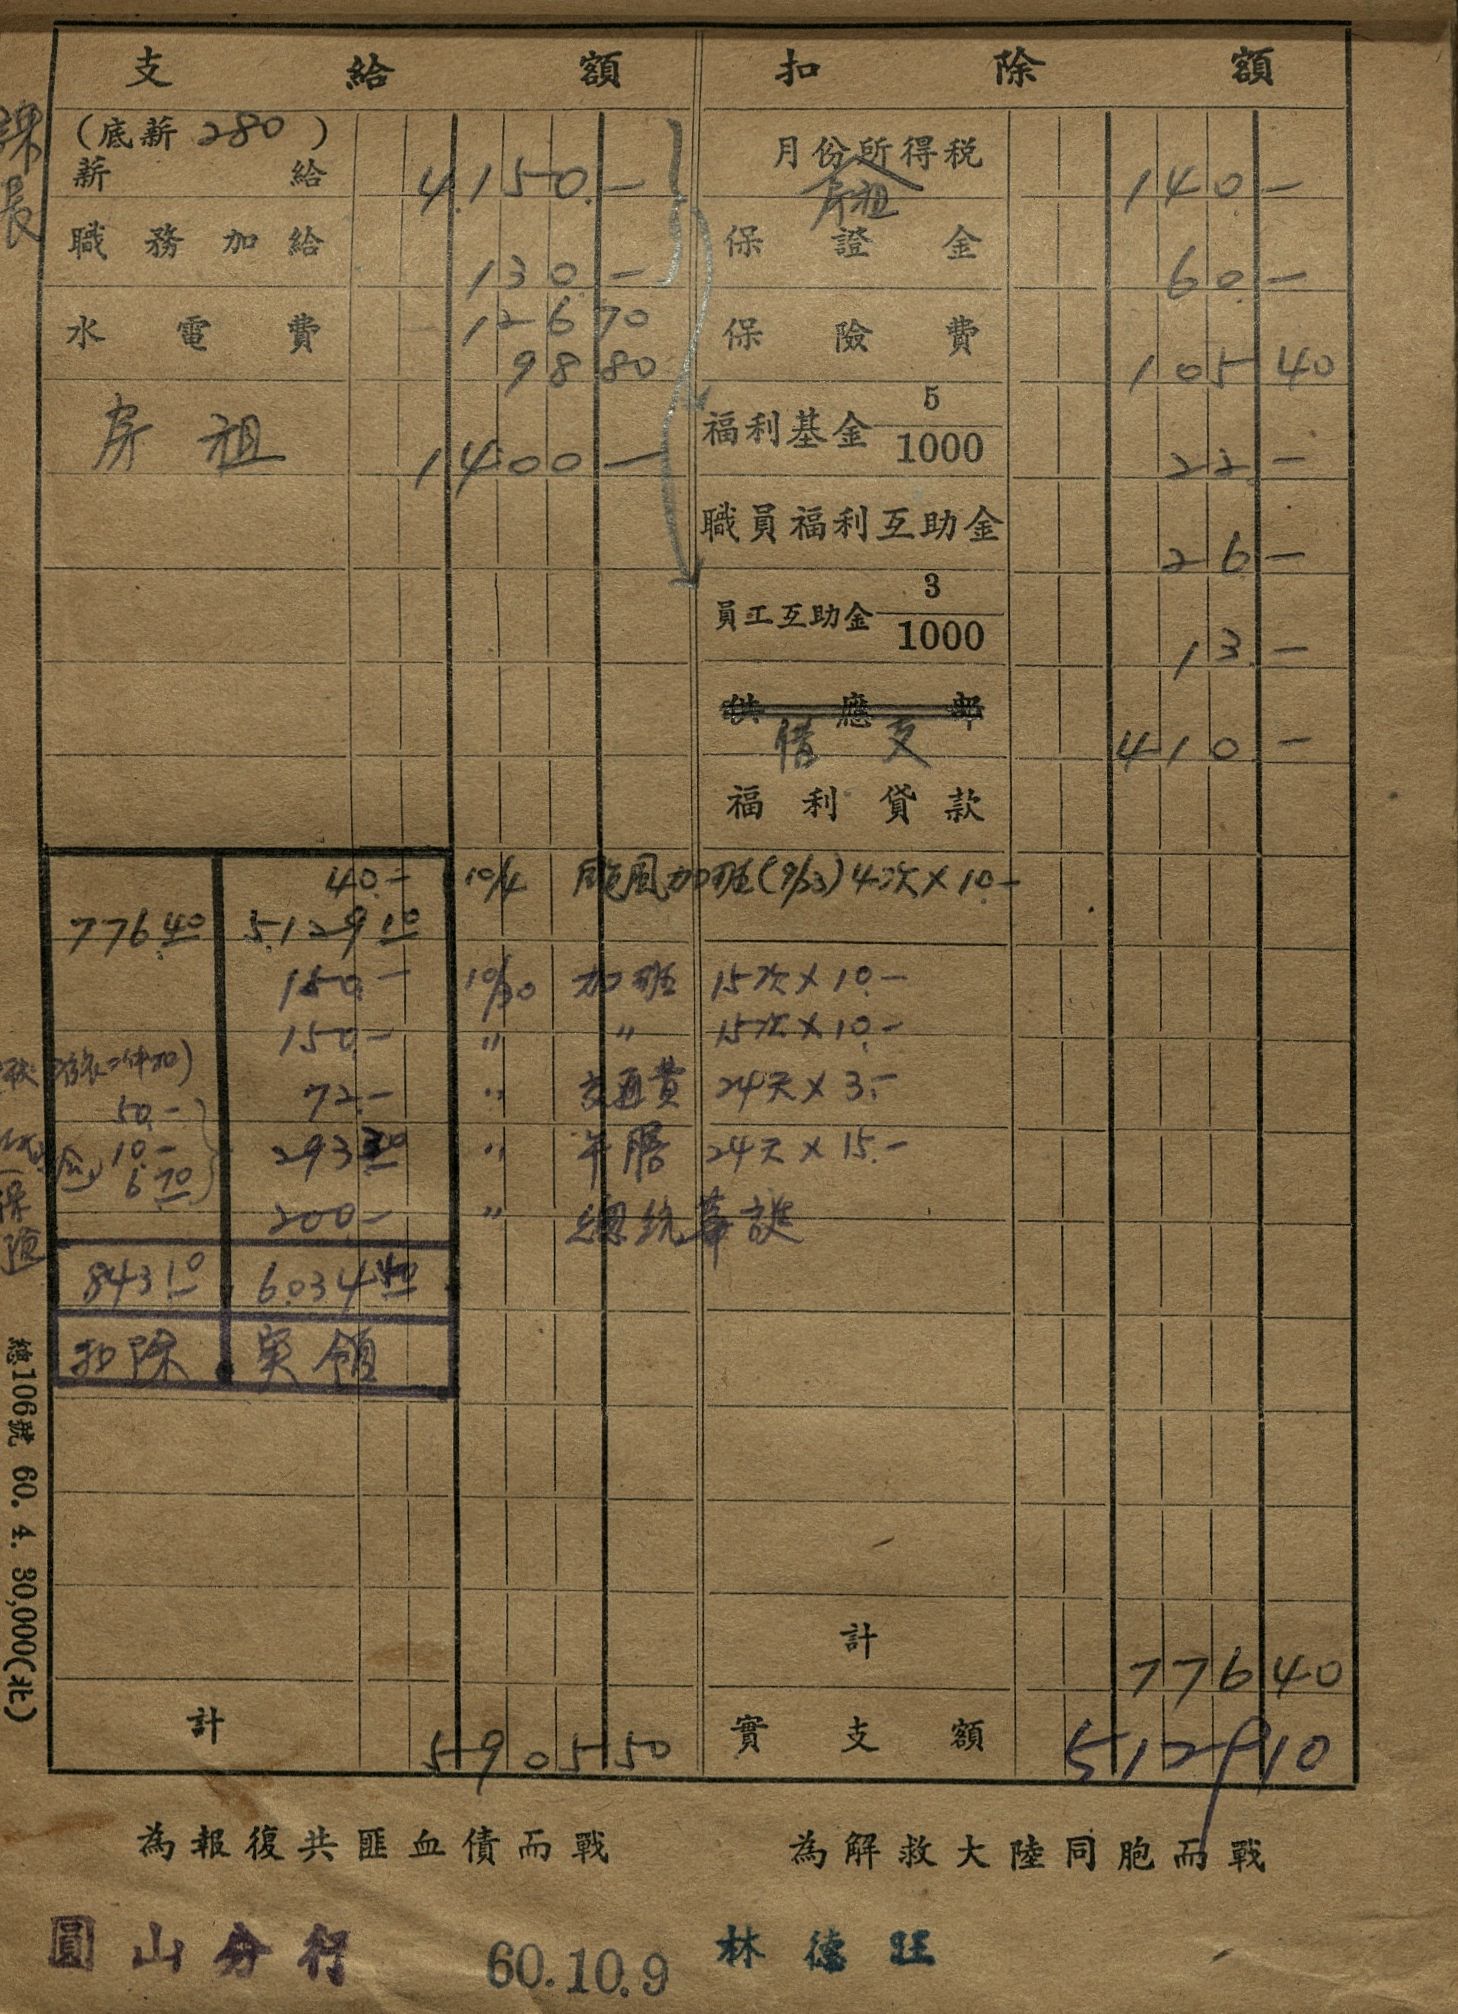 支給額 扣除額
課長
(底薪280)
薪給 4,150.—
職務加給 130.—
水電費 126 70
98 80
房租 1400 —
月份所得税 140.—
房租
保證金 60.—
保險費 105 40
福利基金 5/1000 22.—
職員福利互助金 26.—
員工互助金 3/1000 13.—
供應部
借支 410.—
福利貸款
40.— 10/4 颱風加班(9/23)4次×10.—
776.40 5,129 10
150.— 10/30 加班 15次×10.—
150.— 〃 〃 15次×10.—
72.— 〃 交通費 24天×3.—
50.—
10.— 293 30 〃 午膳 24天×15.—
6.70
保險
200.— 〃 總統華誕
843 10 6,034 40
扣除 実領
計 776 40
計 5905 50
實支額 5129 10
總106號 60. 4. 30,000(北)
為報復共匪血債而戰 為解救大陸同胞而戰
圓山分行 60.10.9 林德旺